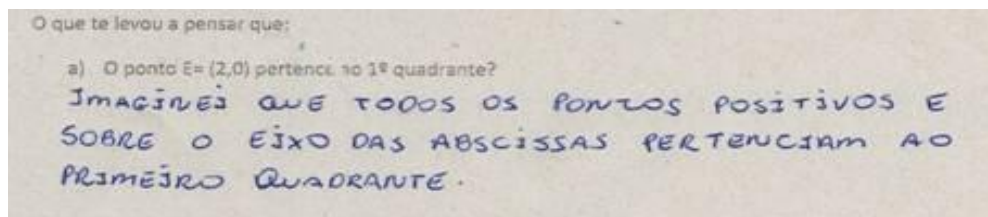 O que te levou a pensar que:
a) O ponto E= (2,0) pertence ao 1º quadrante?
IMAGINEI QUE TODOS OS PONTOS POSITIVOS E
SOBRE O EIXO DAS ABSCISSAS PERTENCIAM AO
PRIMEIRO QUADRANTE.